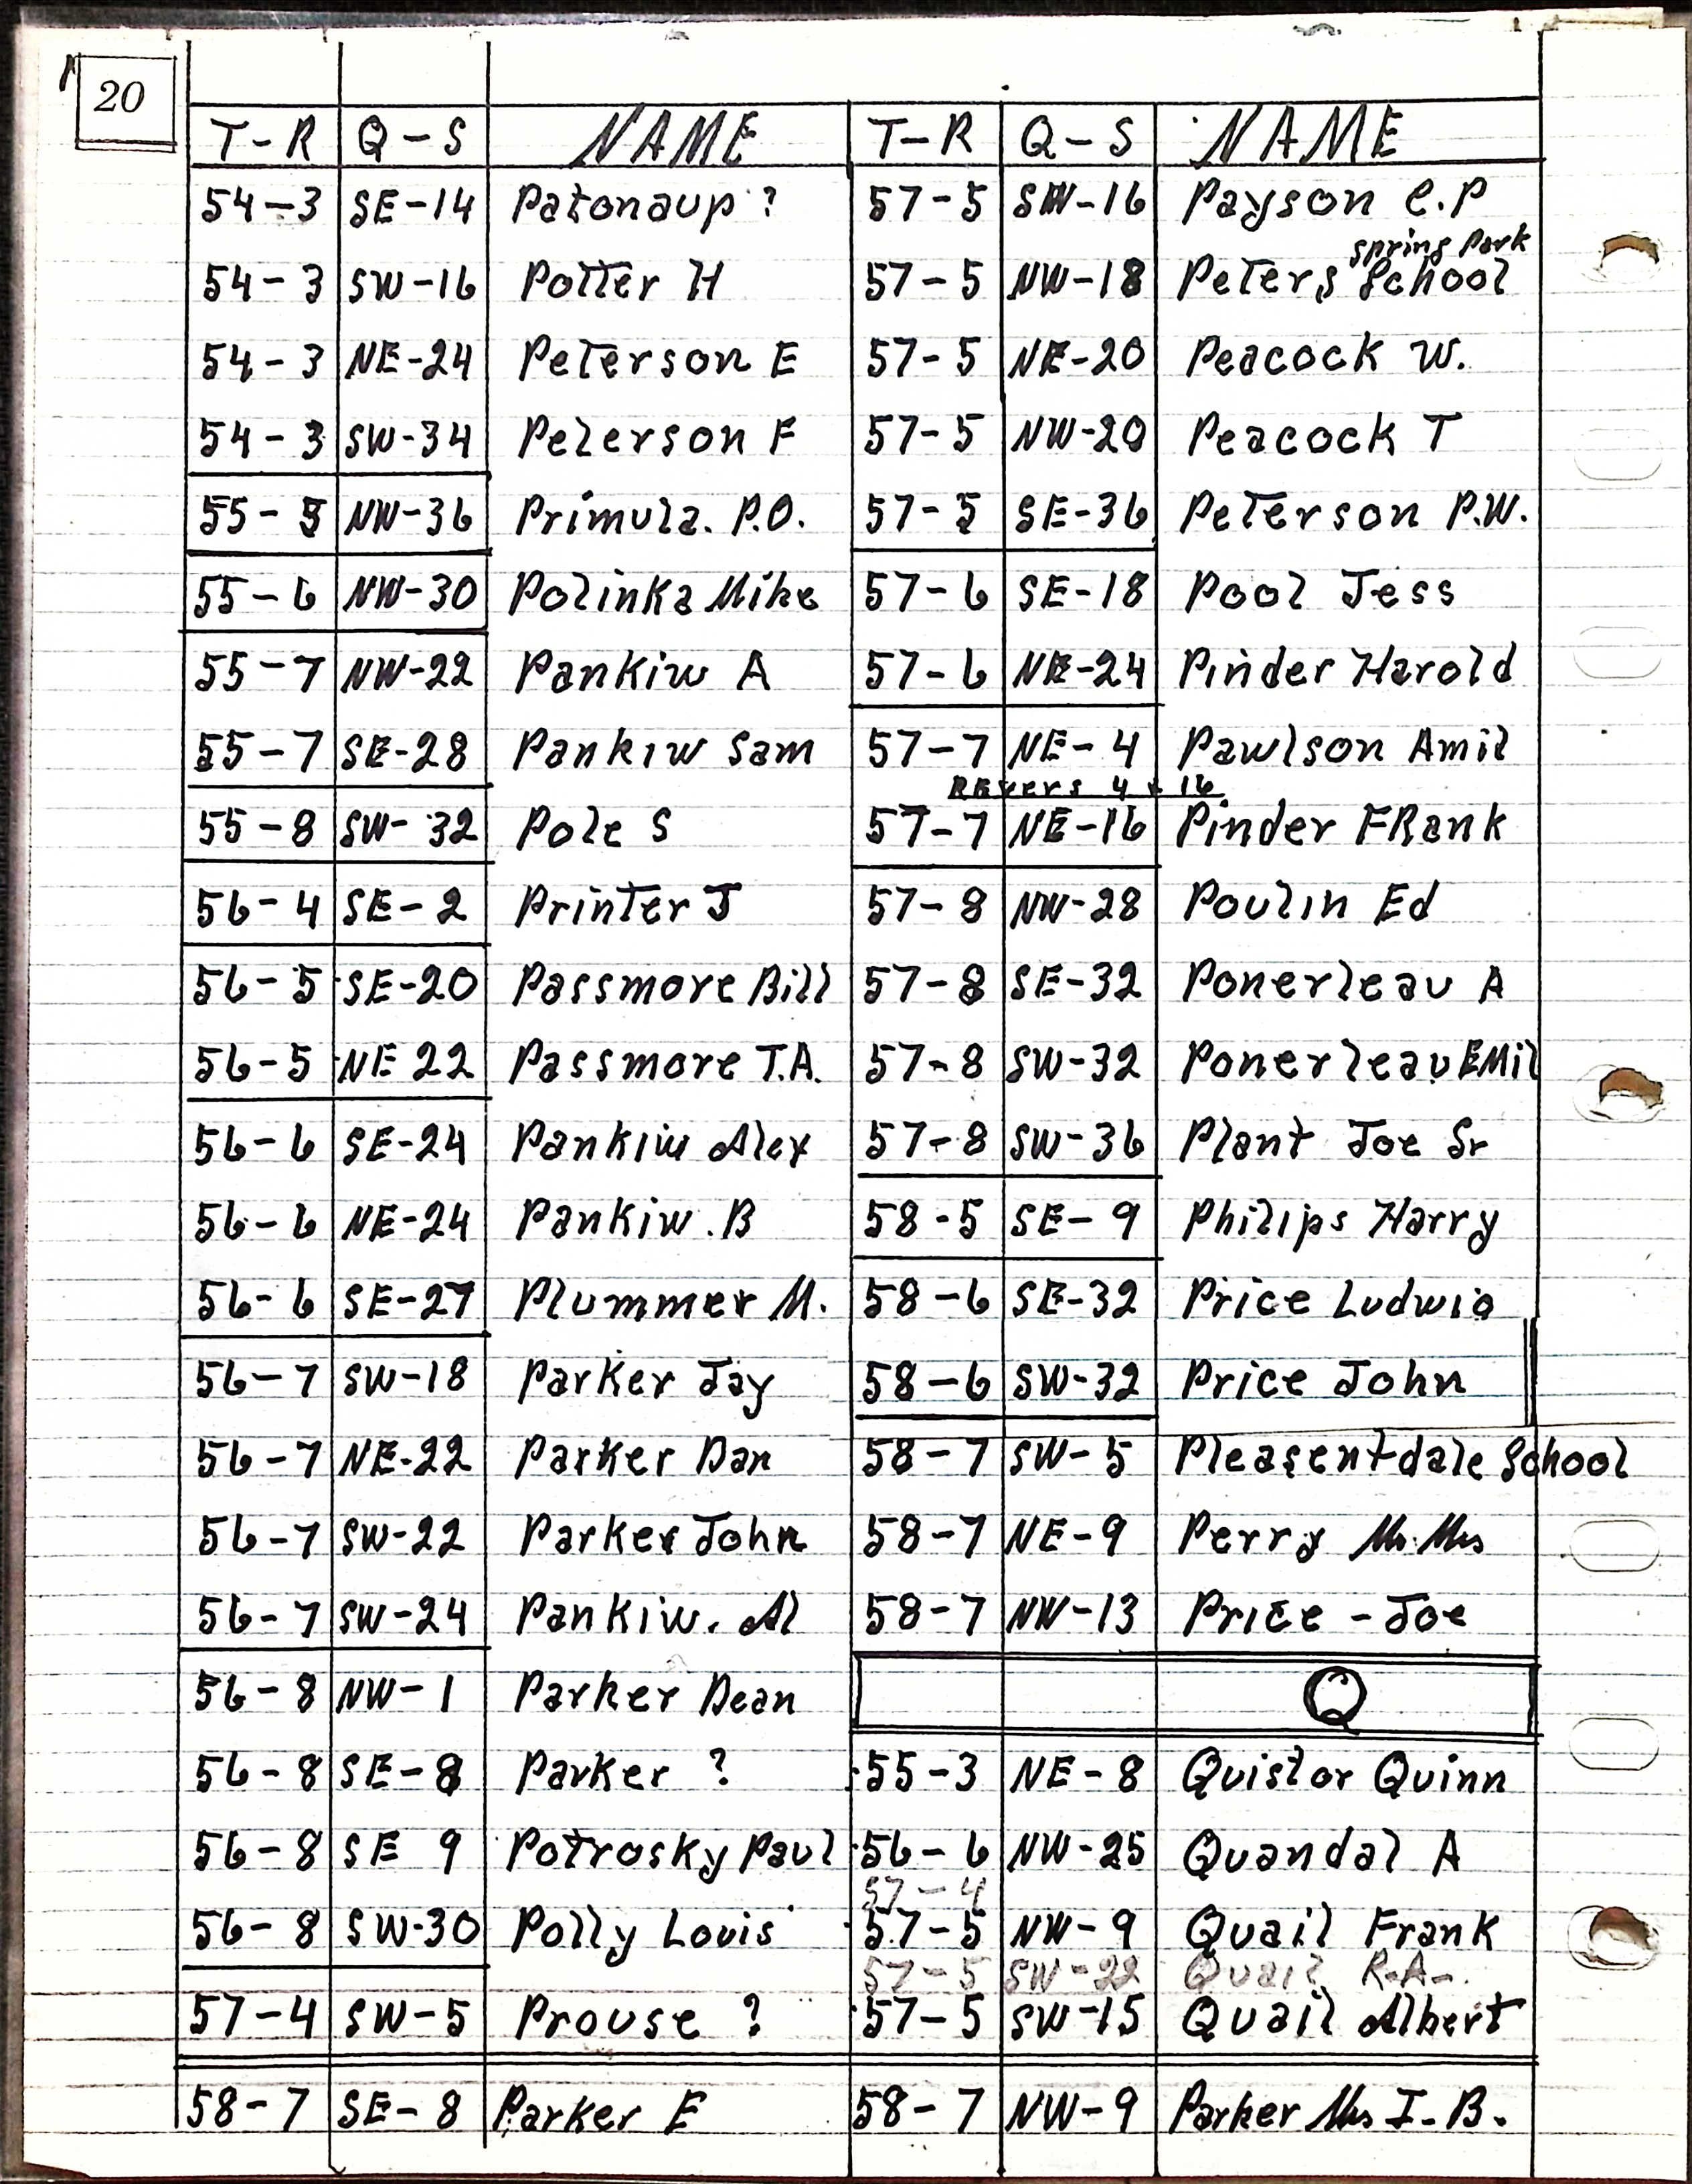 20
T-R Q-S NAME T-R Q-S NAME
54-3 SE-14 Patonaup ? 57-5 SW-16 Payson C.P
Spring Park
54-3 SW-16 Potter H 57-5 NW-18 Peters School
54-3 NE-24 Peterson E 57-5 NE-20 Peacock W.
54-3 SW-34 Peterson F 57-5 NW-20 Peacock T
55-5 NW-36 Primula. P.O. 57-5 SE-36 Peterson P.W.
55-6 NW-30 Polinka Mike 57-6 SE-18 Pool Jess
55-7 NW-22 Pankiw A 57-6 NE-24 Pinder Harold
55-7 SE-28 Pankiw Sam 57-7 NE-4 Pawlson Amil
REvers 4 x 16
55-8 SW-32 Pole S 57-7 NE-16 Pinder FRank
56-4 SE-2 Printer J 57-8 NW-28 Poulin Ed
56-5 SE-20 Passmore Bill 57-8 SE-32 Ponerleau A
56-5 NE 22 Passmore T.A. 57-8 SW-32 Ponerleau EMil
56-6 SE-24 Pankiw Alex 57-8 SW-36 Plant Joe Sr
56-6 NE-24 Pankiw. B 58-5 SE-9 Philips Harry
56-6 SE-27 Plummer M. 58-6 SE-32 Price Ludwig
56-7 SW-18 Parker Jay 58-6 SW-32 Price John
56-7 NE-22 Parker Dan 58-7 SW-5 Pleasentdale School
56-7 SW-22 Parker John 58-7 NE-9 Perry Mr. Mrs
56-7 SW-24 Pankiw. Al 58-7 NW-13 Price - Joe
56-8 NW-1 Parker Dean Q
56-8 SE-8 Parker ? 55-3 NE-8 Quistor Quinn
56-8 SE 9 Potrosky Paul 56-6 NW-25 Quandal A
57-4
56-8 SW-30 Polly Louis 57-5 NW-9 Quail Frank
57-5 SW-22 Quail R.A.
57-4 SW-5 Prouse ? 57-5 SW-15 Quail Albert
58-7 SE-8 Parker E 58-7 NW-9 Parker Mrs I-B.